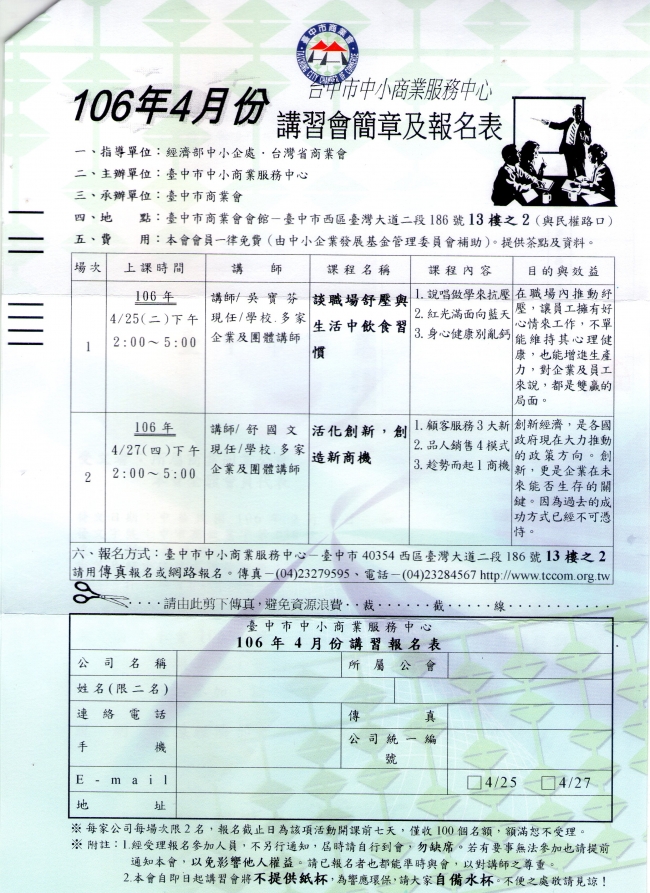 臺中市商業會
TAICHUNG CITY CHAMBER OF COMMERCE
106年4月份
台中市中小商業服務中心
講習會簡章及報名表
一、指導單位：經濟部中小企處．台灣省商業會
二、主辦單位：臺中市中小商業服務中心
三、承辦單位：臺中市商業會
四、地　　點：臺中市商業會會館－臺中市西區臺灣大道二段186號13樓之2（與民權路口）
五、費　　用：本會會員一律免費（由中小企業發展基金管理委員會補助）。提供茶點及資料。
場次 上課時間 講師 課程名稱 課程內容 目的與效益
1
106年
4/25(二)下午
2:00～5:00
講師/吳寶芬
現任/學校.多家
企業及團體講師
談職場舒壓與
生活中飲食習
慣
1.說唱做學來抗壓
2.紅光滿面向藍天
3.身心健康別亂鈣
在職場內推動紓
壓，讓員工擁有好
心情來工作，不單
能維持其心理健
康，也能增進生產
力，對企業及員工
來說，都是雙贏的
局面。
2
106年
4/27(四)下午
2:00～5:00
講師/舒國文
現任/學校.多家
企業及團體講師
活化創新，創
造新商機
1.顧客服務3大新
2.品人銷售4模式
3.趁勢而起1商機
創新經濟，是各國
政府現在大力推動
的政策方向。創
新，更是企業在未
來能否生存的關
鍵。因為過去的成
功方式已經不可憑
恃。
六、報名方式：臺中市中小商業服務中心－臺中市40354西區臺灣大道二段186號13樓之2
請用傳真報名或網路報名。傳真－(04)23279595、電話－(04)23284567 http://www.tccom.org.tw
．．．．請由此剪下傳真，避免資源浪費．．裁．．．．．．截．．．．．線．．．．．．．．．．．
臺中市中小商業服務中心
106年4月份講習報名表
公司名稱 所屬公會
姓名(限二名)
連絡電話 傳真
手機 公司統一編
號
E-mail □4/25 □4/27
地址
※ 每家公司每場次限2名，報名截止日為該項活動開課前七天，僅收100個名額，額滿恕不受理。
※ 附註：1.經受理報名參加人員，不另行通知，屆時請自行到會，勿缺席。若有要事無法參加也請提前
通知本會，以免影響他人權益。請已報名者也都能準時與會，以對講師之尊重。
2.本會自即日起講習會將不提供紙杯，為響應環保，請大家自備水杯。不便之處敬請見諒！